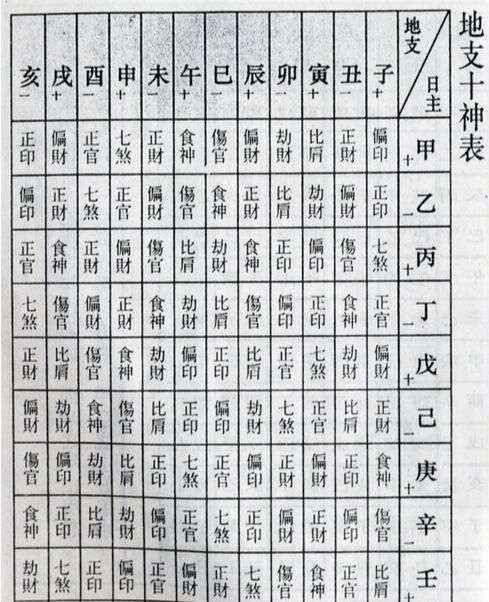 地支十神表
地支 日主 子+ 丑一 寅+ 卯一 辰+ 巳一 午+ 未一 申+ 酉一 戌+ 亥一
甲+ 偏印 正財 比肩 劫財 偏財 傷官 食神 正財 七煞 正官 偏財 正印
乙一 正印 偏財 劫財 比肩 正財 食神 傷官 偏財 正官 七煞 正財 偏印
丙+ 七煞 傷官 偏印 正印 食神 劫財 比肩 傷官 偏財 正財 食神 正官
丁一 正官 食神 正印 偏印 傷官 比肩 劫財 食神 正財 偏財 傷官 七煞
戊+ 偏財 劫財 七煞 正官 比肩 正印 偏印 劫財 食神 傷官 比肩 正財
己一 正財 比肩 正官 七煞 劫財 偏印 正印 比肩 傷官 食神 劫財 偏財
庚+ 食神 正印 偏財 正財 偏印 正官 七煞 正印 比肩 劫財 偏印 傷官
辛一 傷官 偏印 正財 偏財 正印 七煞 正官 偏印 劫財 比肩 正印 食神
壬+ 比肩 正官 食神 傷官 七煞 正財 偏財 正官 偏印 正印 七煞 劫財